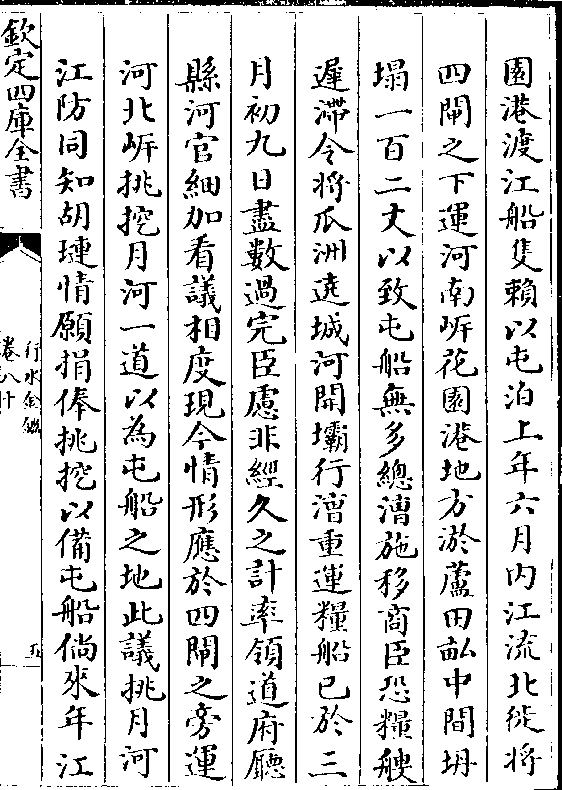 園港渡江船隻賴以屯泊上年六月内江流北徙將
四閘之下運河南岍花園港地方淤蘆田畝中間坍
塌一百二丈以致屯船無多總漕施移商臣恐糧艘
遲滯令將瓜洲遶城河開壩行漕重運糧船已於三
月初九日盡數過完臣慮非經久之計率領道府廳
縣河官細加看議相度現今情形應於四閘之旁運
河北岍挑挖月河一道以為屯船之地此議挑月河
江防同知胡璉情願捐俸挑挖以備屯船倘來年江
欽定四庫全書
行水金鑑
卷八十
五